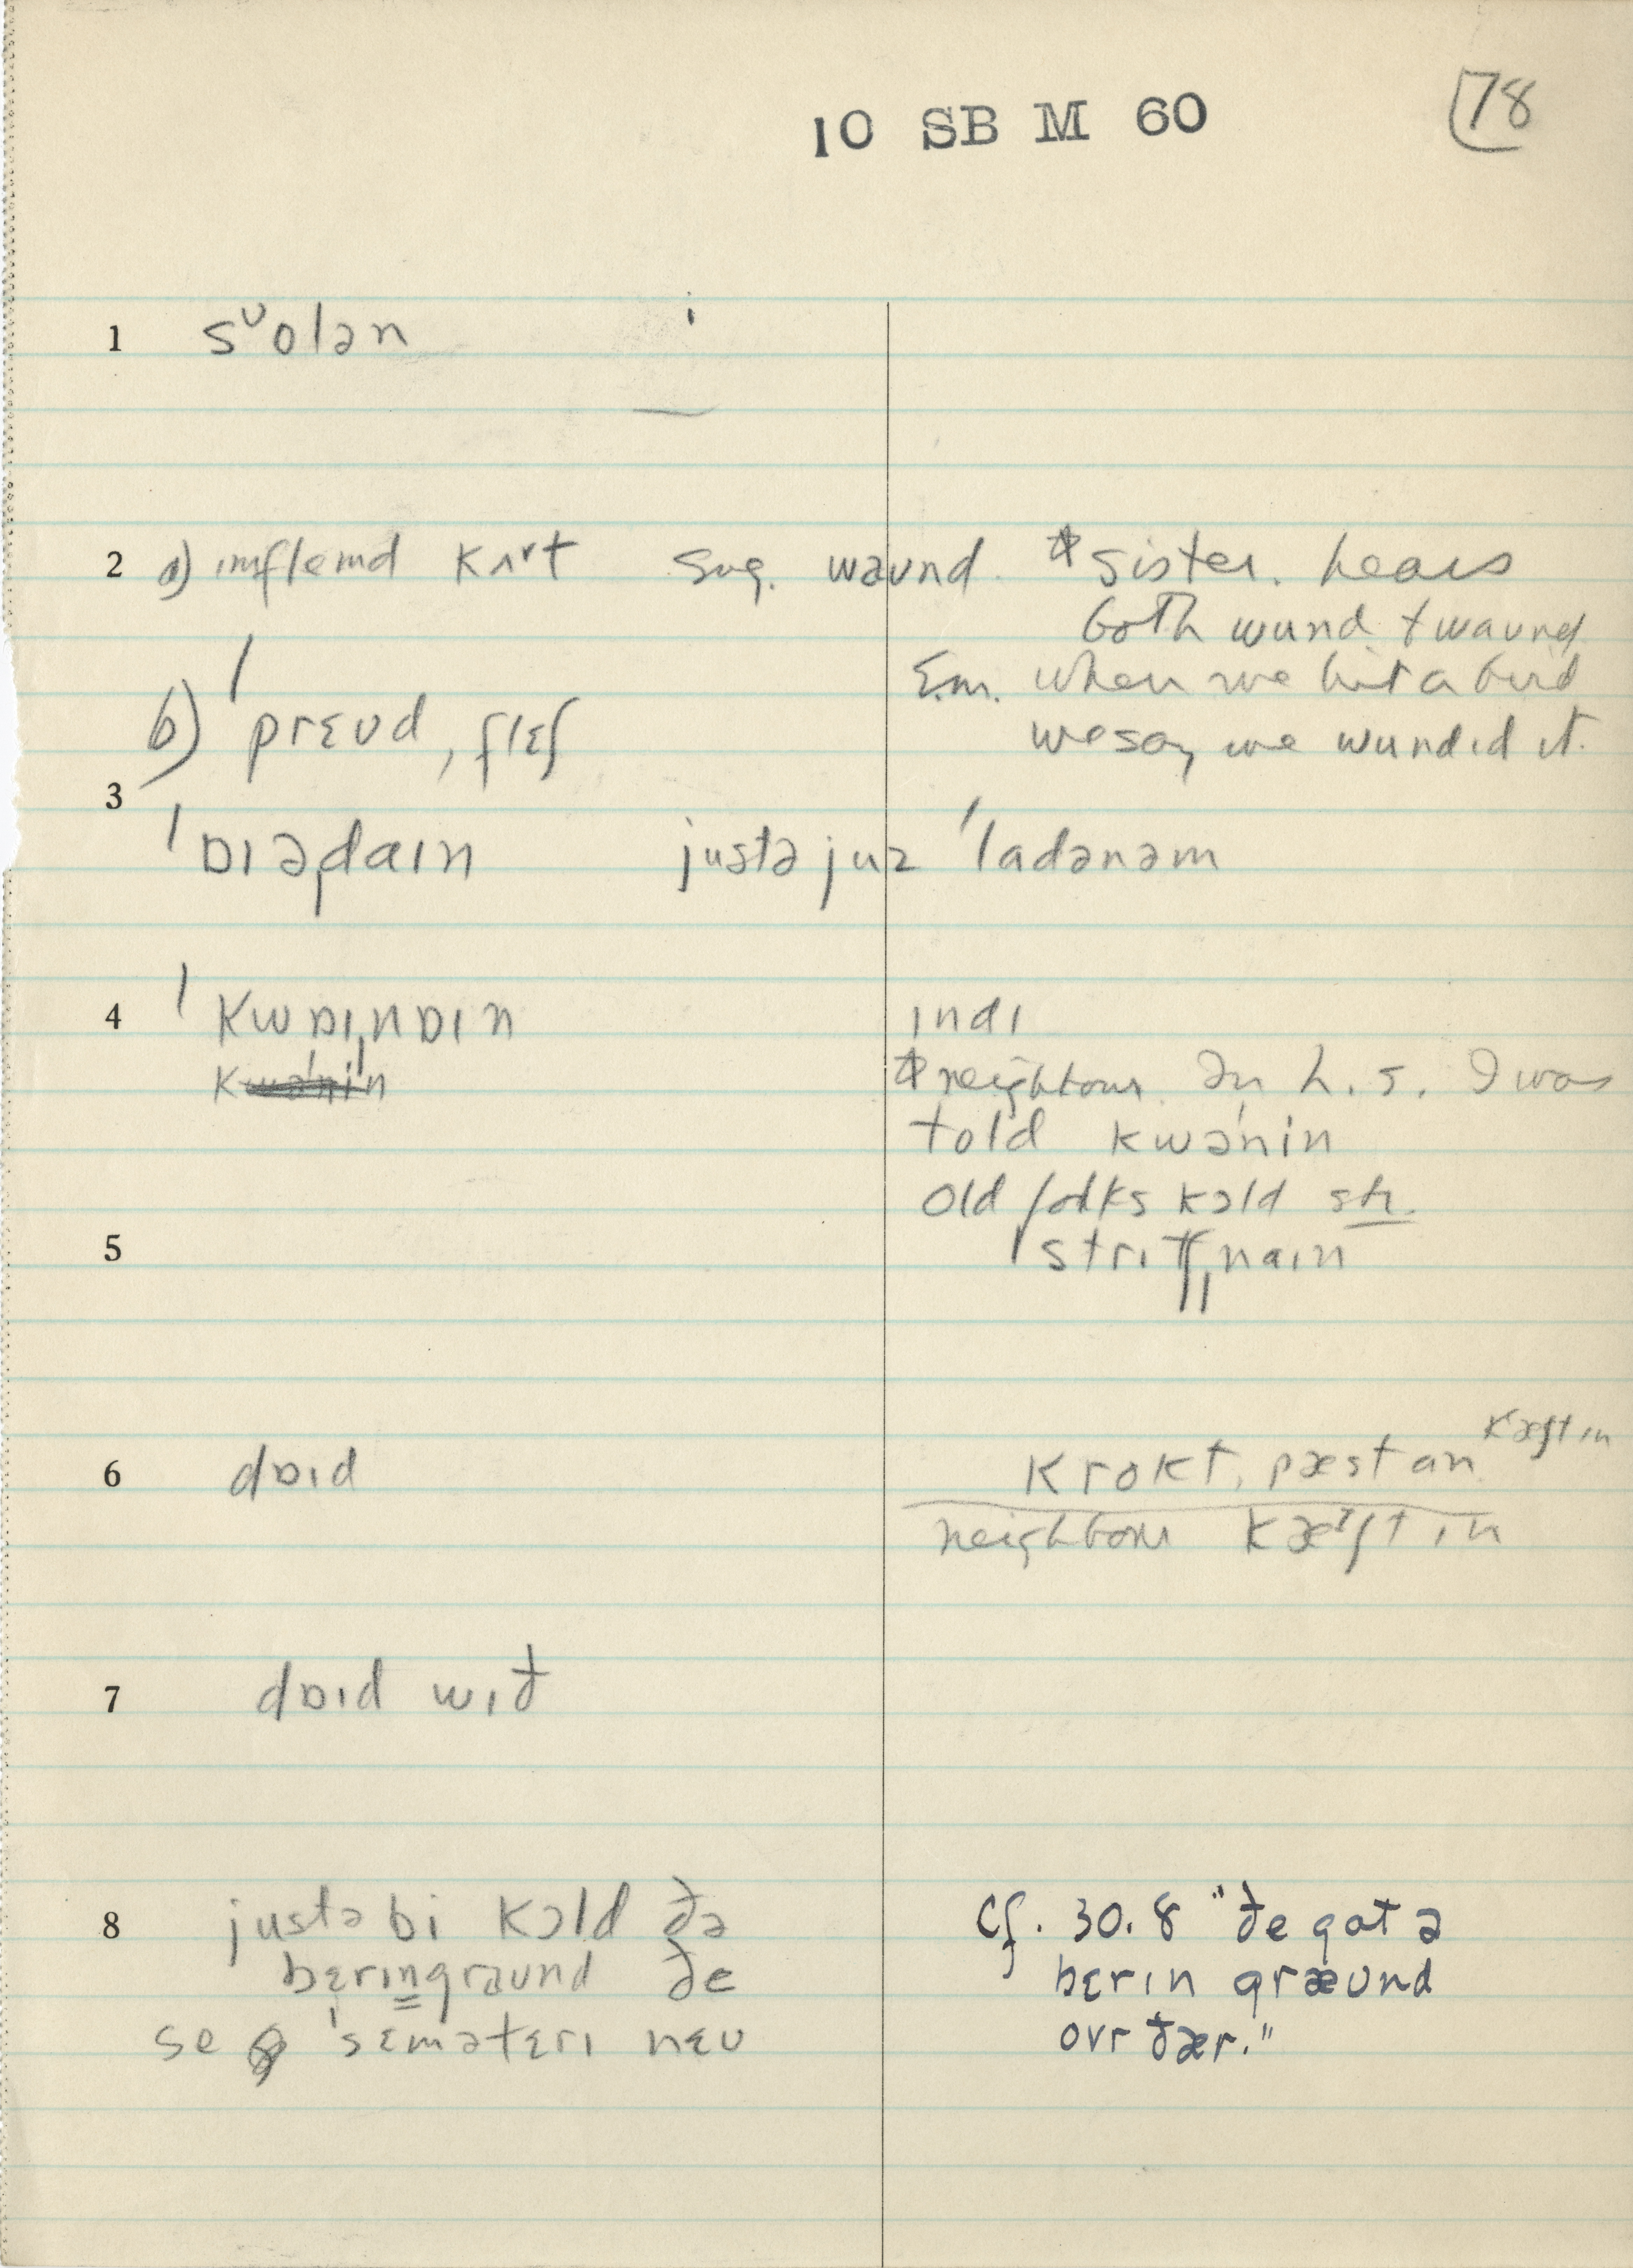 10 SB M 60
78
1 sᶷolən
2 a) ɪmflemd kʌʳt sug. waund. * sister. hears
both wund + waund
Em. when we hit a bird
b) ˈprɛud, flɛʃ
we say we wundɪd ɪt.
3
ˈɒɪəˌdaɪn justə juz ˈladənəm
4 ˈkwɒɪˌnɒɪn ɪndɪ
* neighbour. In h. s. I was
told kwəˈnin
old folks kɔld sh.
5 ˈstrɪʧˌnaɪn
6 dɒɪd krokt, pæst an kæʃt ɪn
neighbour kæᶦʃt ɪn
7 dɒɪd wɪð
8 justə bi kɔld ðə
bɛrɪngraund ðe
se ˈsɛmətɛrɪ nɛu
Cf. 30.8 "ðe gat ə
bɛrɪn græund
ovr ðær."